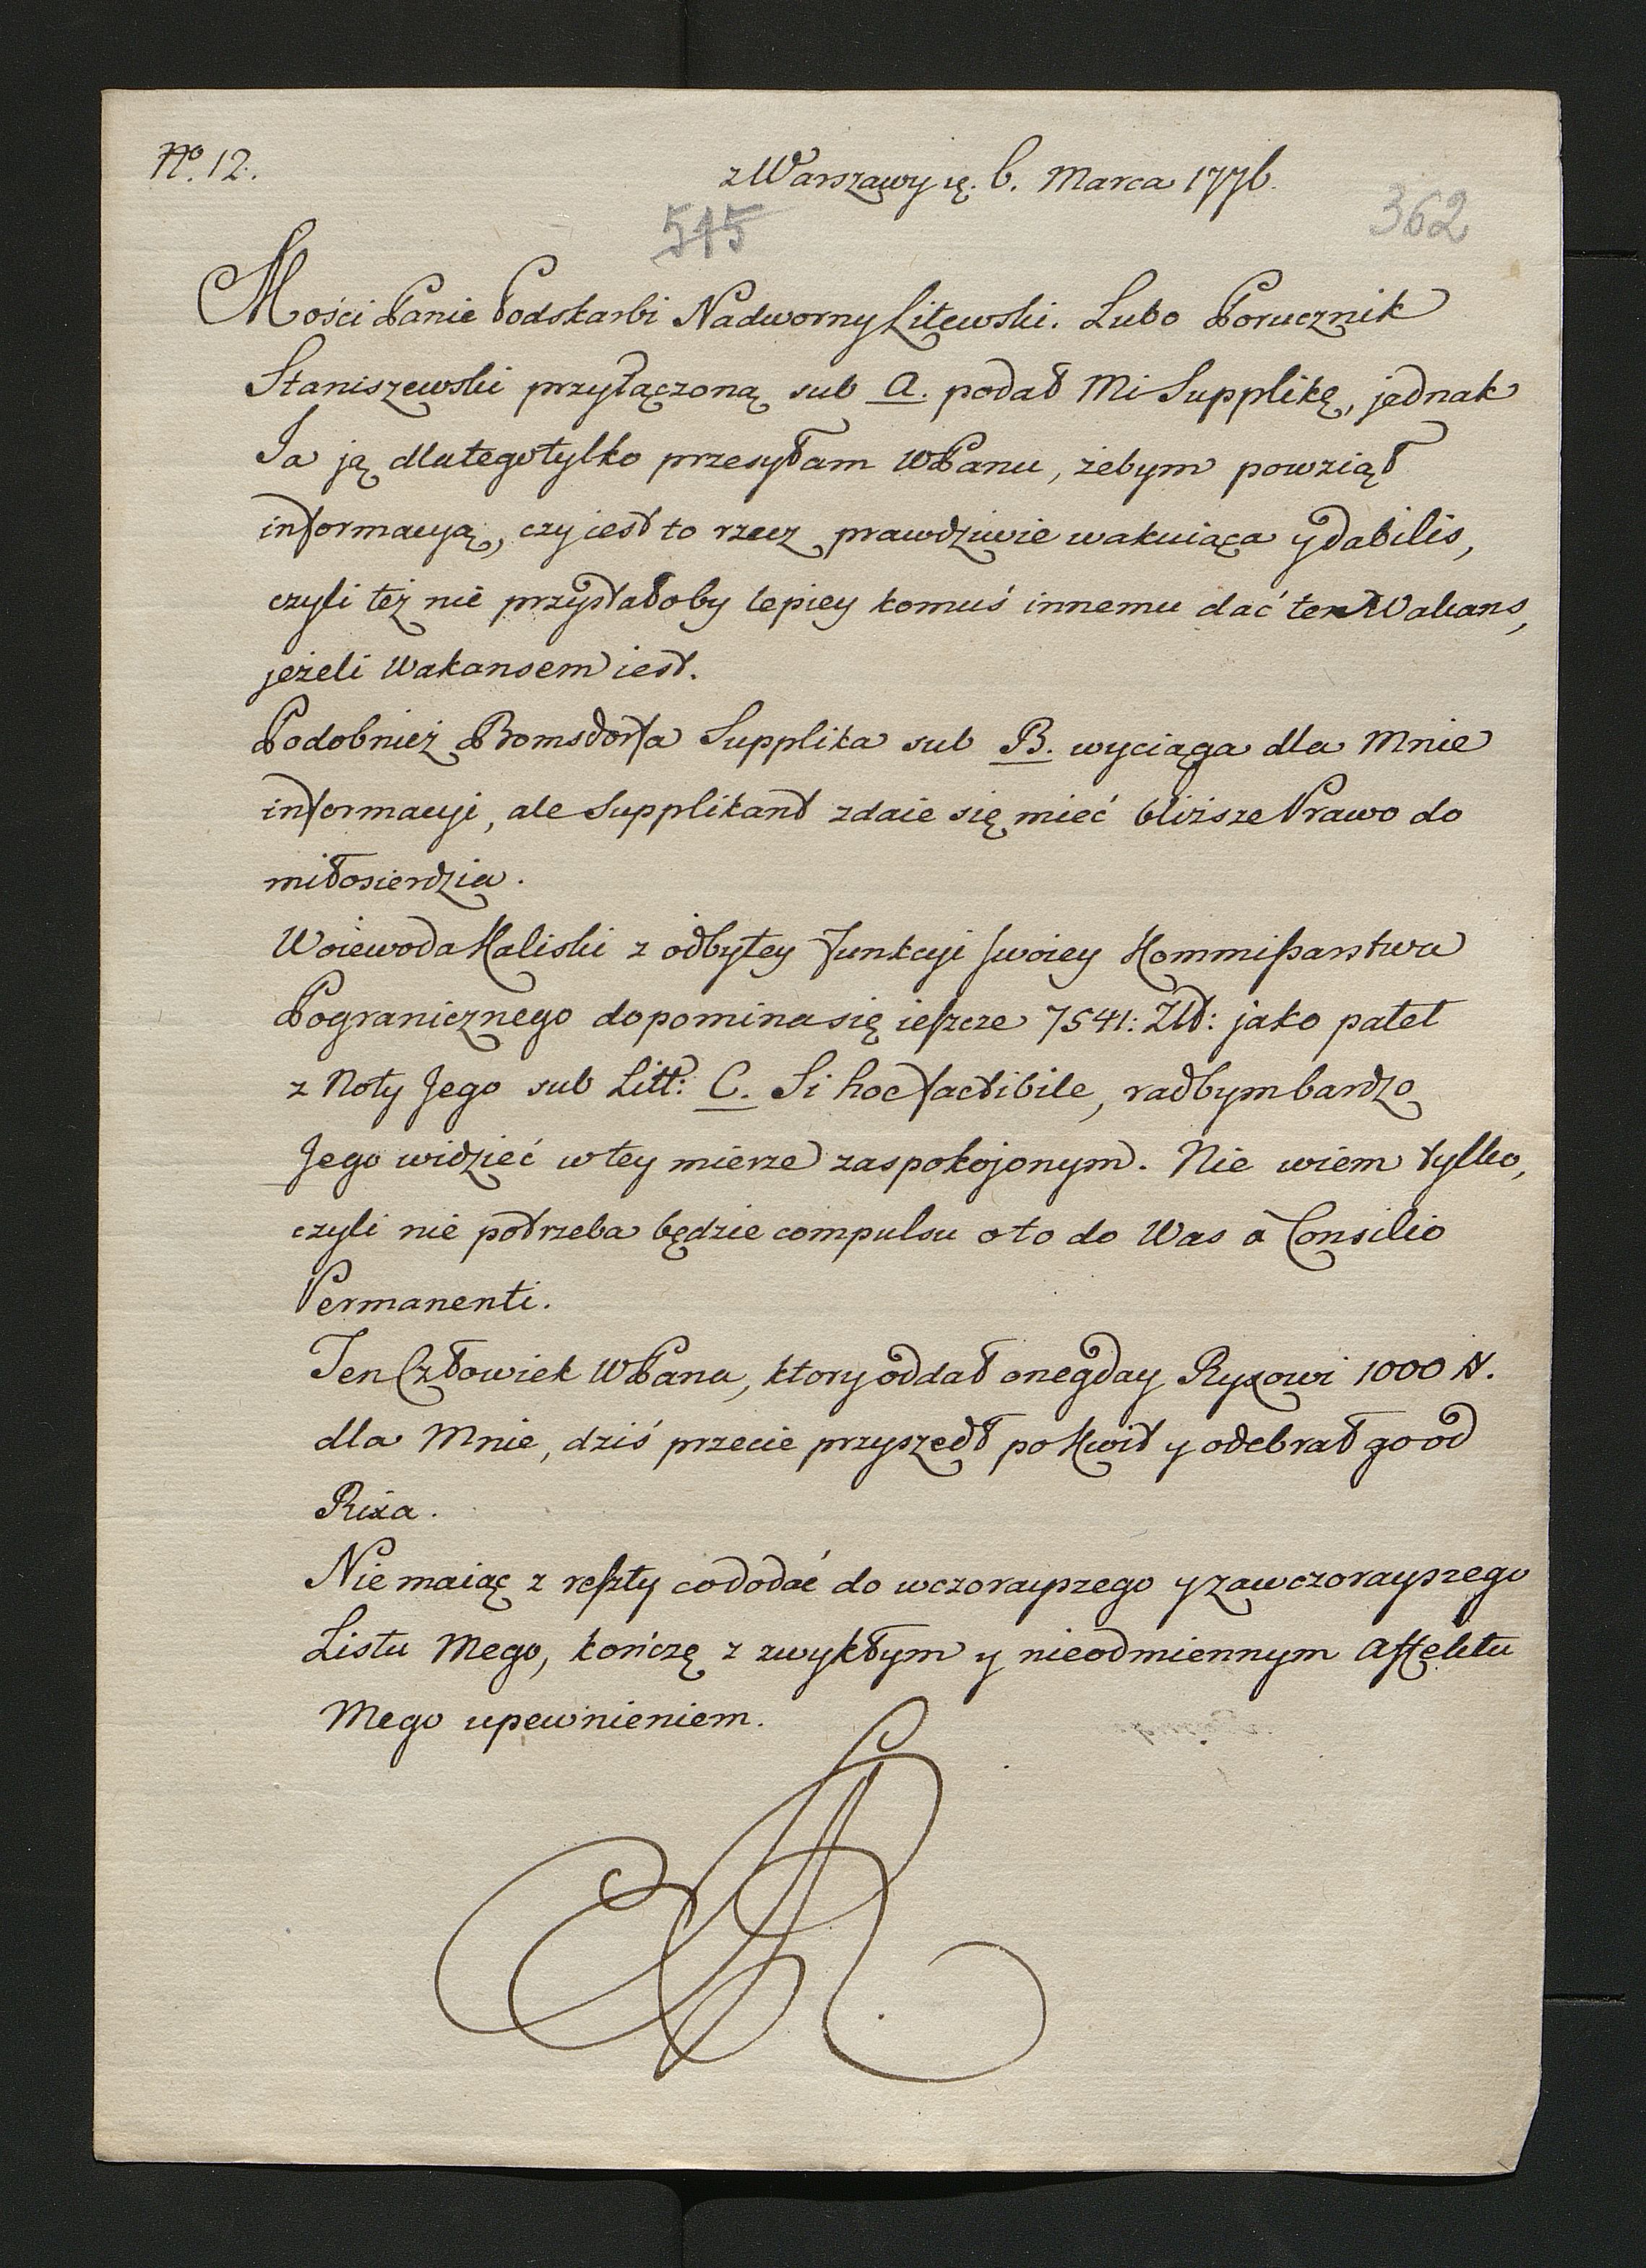 No. 12.
z Warszawy ię. 6. Marca 1776.
515
362
Mości Panie Podskarbi Nadworny Litewski. Lubo Porucznik
Staniszewski przyłączoną sub A. podał Mi Supplikę, jednak
Ja ją dlategotylko przesyłam WPanu, żebym powziął
informacyą, czy iest to rzecz prawdziwie wakuiąca y dabilis,
czyli też nie przystałoby lepiey komuś innemu dać ten Wakans,
jeżeli Wakansem iest.
Podobnież Bomsdorfa Supplika sub B. wyciąga dla Mnie
informacyi, ale Supplikant zdaie się mieć bliższe Prawo do
miłosierdzia.
Woiewoda Kaliski z odbytey Funkcyi swoiey Kommissarstwa
Pogranicznego dopomina się ieszcze 7541: Złł: jako patet
z Noty Jego sub Litt: C. Si hoc factibile, radbym bardzo
Jego widzieć w tey mierze zaspokojonym. Nie wiem tylko,
czyli nie potrzeba będzie compulsu o to do Was à Consilio
Permanenti.
Ten Człowiek WPana, ktory oddał onegday Ryxowi 1000 #.
dla Mnie, dziś przecie przyszedł po Kwit y odebrał go od
Rixa.
Nie maiąc z reszty co dodać do wczorayszego y zawczorayszego
Listu Mego, kończę z zwykłym y nieodmiennym Affektu
Mego upewnieniem.